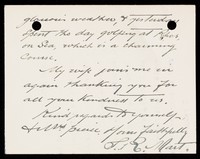 glorious weather, & yesterday
spent the day golfing at
on Sea, which is a charming
Course.
My wife joins me in
again thanking you for
all your kindness to us.
Kind regards to yourself
& Mrs Yours faithfully